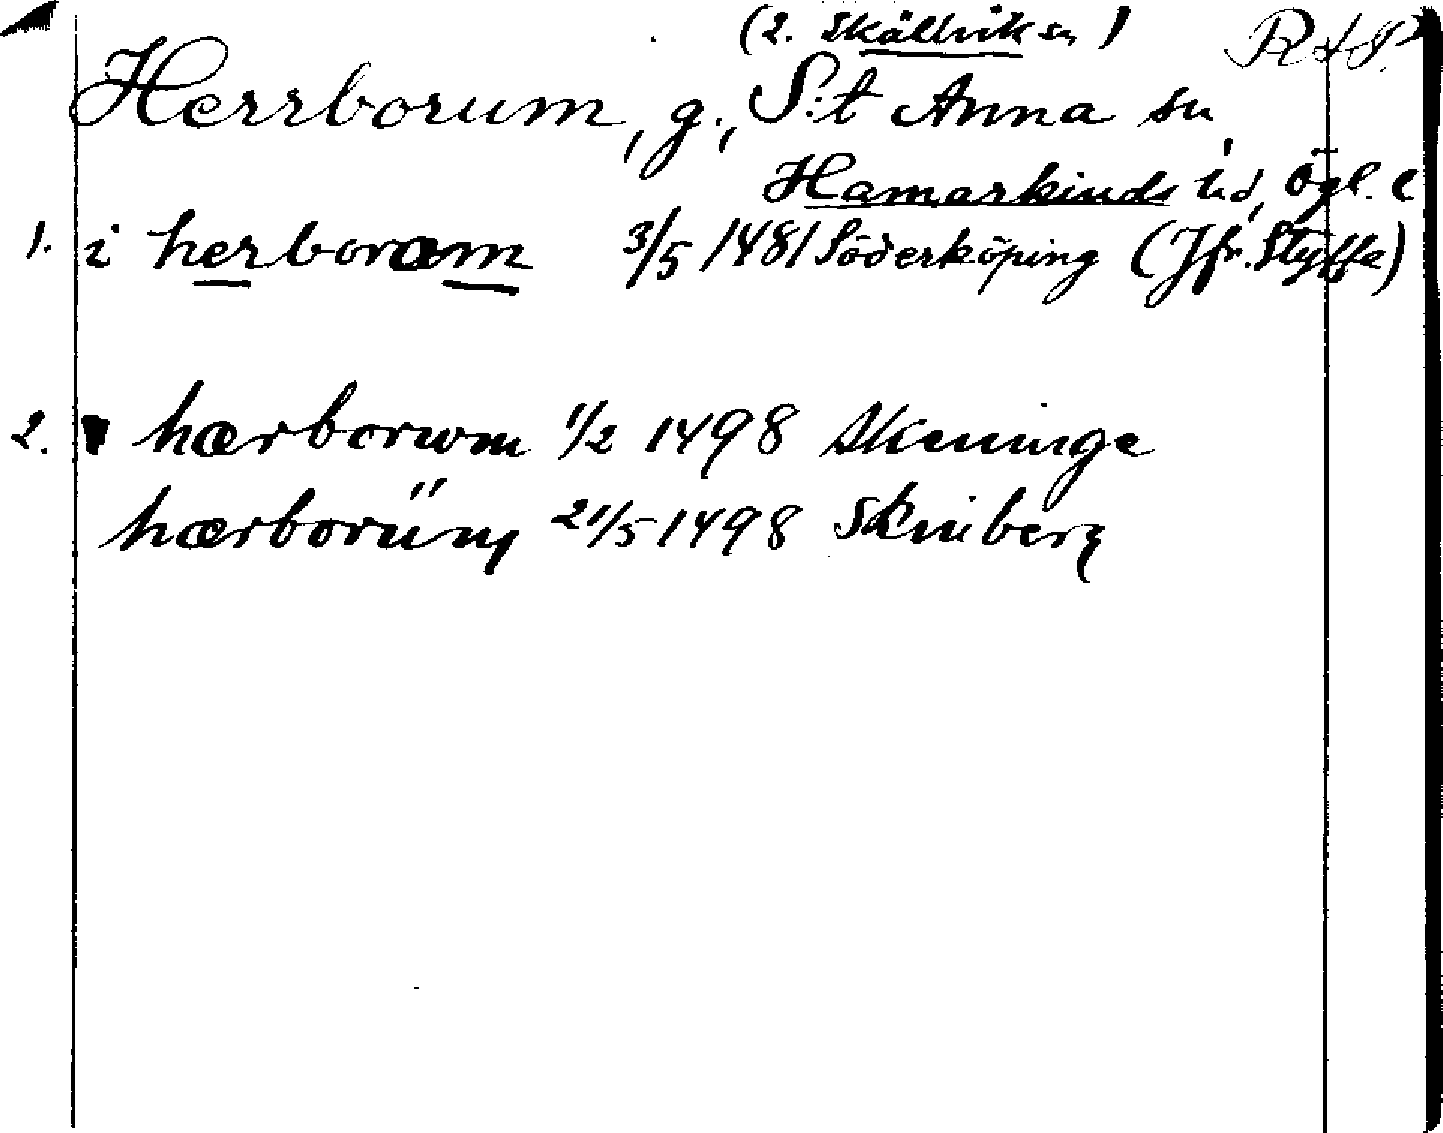 (2. Skällvik sn) R+P.
Herrborum, g., S:t Anna sn,
Hamarkinds hd, Ögl. l
1. i herboræm 3/5 1481 Söderköping (Jfr. Styffe)
2. hærborwm 1/2 1498 Skeninge
hærborüm 21/5 1498 Skeniberg